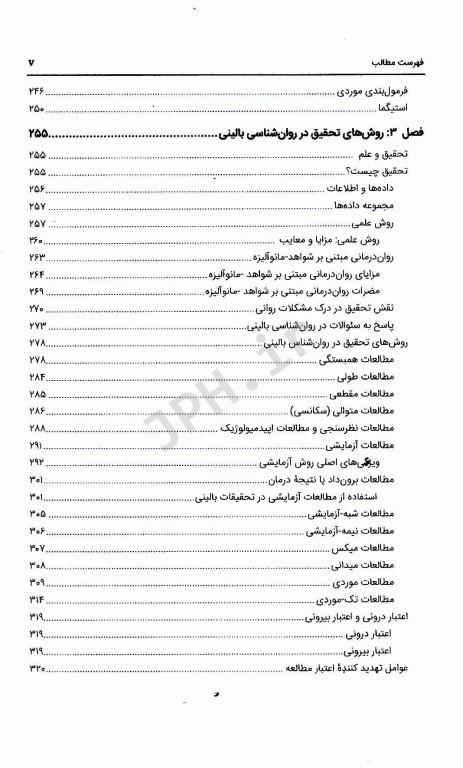 فهرست مطالب ۷
فرمول‌بندی موردی ۲۴۶
استیگما ۲۵۰
فصل ۳: روش‌های تحقیق در روان‌شناسی بالینی ۲۵۵
تحقیق و علم ۲۵۵
تحقیق چیست؟ ۲۵۵
داده‌ها و اطلاعات ۲۵۶
مجموعه داده‌ها ۲۵۷
روش علمی ۲۵۷
روش علمی: مزایا و معایب ۲۶۰
روان‌درمانی مبتنی بر شواهد-مانوآلیزه ۲۶۳
مزایای روان‌درمانی مبتنی بر شواهد -مانوآلیزه ۲۶۴
مضرات روان‌درمانی مبتنی بر شواهد -مانوآلیزه ۲۶۹
نقش تحقیق در درک مشکلات روانی ۲۷۰
پاسخ به سئوالات در روان‌شناسی بالینی ۲۷۳
روش‌های تحقیق در روان‌شناس بالینی ۲۷۸
مطالعات همبستگی ۲۷۸
مطالعات طولی ۲۸۴
مطالعات مقطعی ۲۸۵
مطالعات متوالی (سکانسی) ۲۸۶
مطالعات نظرسنجی و مطالعات اپیدمیولوژیک ۲۸۸
مطالعات آزمایشی ۲۹۱
ویژگی‌های اصلی روش آزمایشی ۲۹۲
مطالعات برون‌داد یا نتیجهٔ درمان ۳۰۱
استفاده از مطالعات آزمایشی در تحقیقات بالینی ۳۰۱
مطالعات شبه-آزمایشی ۳۰۵
مطالعات نیمه-آزمایشی ۳۰۶
مطالعات میکس ۳۰۷
مطالعات میدانی ۳۰۸
مطالعات موردی ۳۰۹
مطالعات تک-موردی ۳۱۴
اعتبار درونی و اعتبار بیرونی ۳۱۹
اعتبار درونی ۳۱۹
اعتبار بیرونی ۳۱۹
عوامل تهدید کنندهٔ اعتبار مطالعه ۳۲۰
JPH.ir